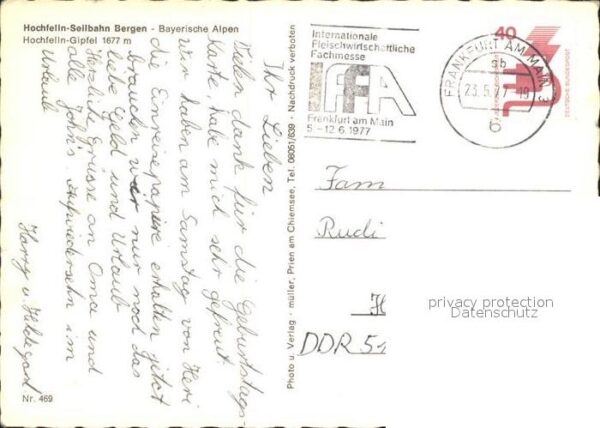 Hochfelln-Seilbahn Bergen - Bayerische Alpen
Hochfelln-Gipfel 1677 m
Ihr Lieben
Vielen dank für die Geburtstags
karte habe mich sehr gefreut.
Wir haben am Samstag von Heri
die Einreisepapiere erhalten jetzt
brauchen wir nur noch das
liebe Geld und Urlaub
Herzliche Grüsse an Oma und
alle John's. Aufwiedersehn im
Urlaub
Harry u. Hildegard
Nr. 469
Photo u. Verlag · müller, Prien am Chiemsee, Tel. 08051/639 · Nachdruck verboten
Internationale
Fleischwirtschaftliche
Fachmesse
IFFA
Frankfurt am Main
5.-12.6.1977
FRANKFURT AM MAIN 3
sb
23.5.77-18
40
DEUTSCHE BUNDESPOST
Fam
Rudi
H
DDR 51
privacy protection
Datenschutz